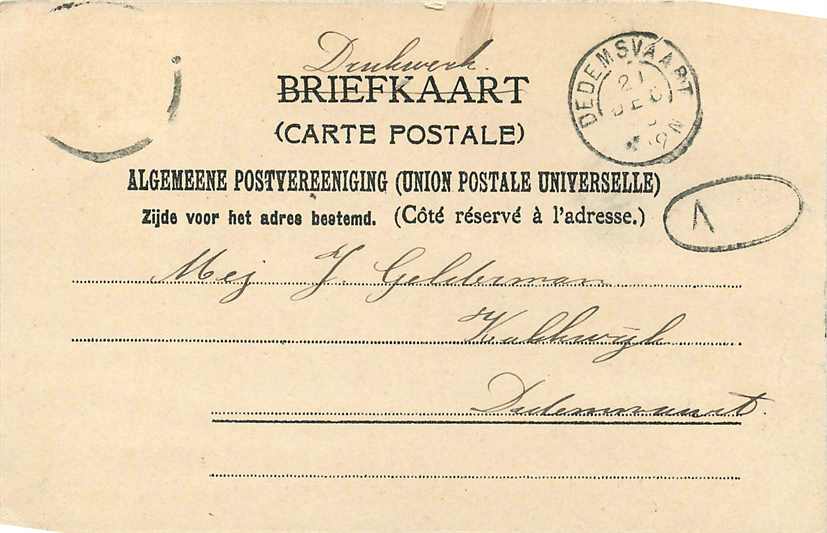 Drukwerk.
BRIEFKAART
(CARTE POSTALE)
DEDEMSVAART
21
DEC
ALGEMEENE POSTVEREENIGING (UNION POSTALE UNIVERSELLE)
Zijde voor het adres bestemd. (Côté réservé à l'adresse.)
A
Mej J. Gelderman
Kalkwijk
Dedemsvaart.